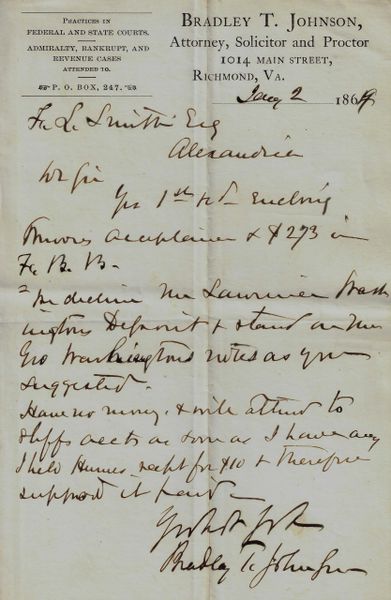 PRACTICES IN
FEDERAL AND STATE COURTS.
ADMIRALTY, BANKRUPT, AND
REVENUE CASES
ATTENDED TO.
P. O. BOX, 247.
BRADLEY T. JOHNSON,
Attorney, Solicitor and Proctor
1014 MAIN STREET,
RICHMOND, VA.
Jany 2 1869
F. L. Smith Esq
Alexandria
Dr Sir
Yrs 1st recd Enclosing
acceptance & $273 in
F. B. B.
We decline Mr Lawrence Wash
ingtons Deposit & stand on Mr
Geo Washingtons notes as you
suggested.
Have no money & will attend to
accts as soon as I have any
I held recpt for $10 & therefore
support it paid
Bradley T. Johnson